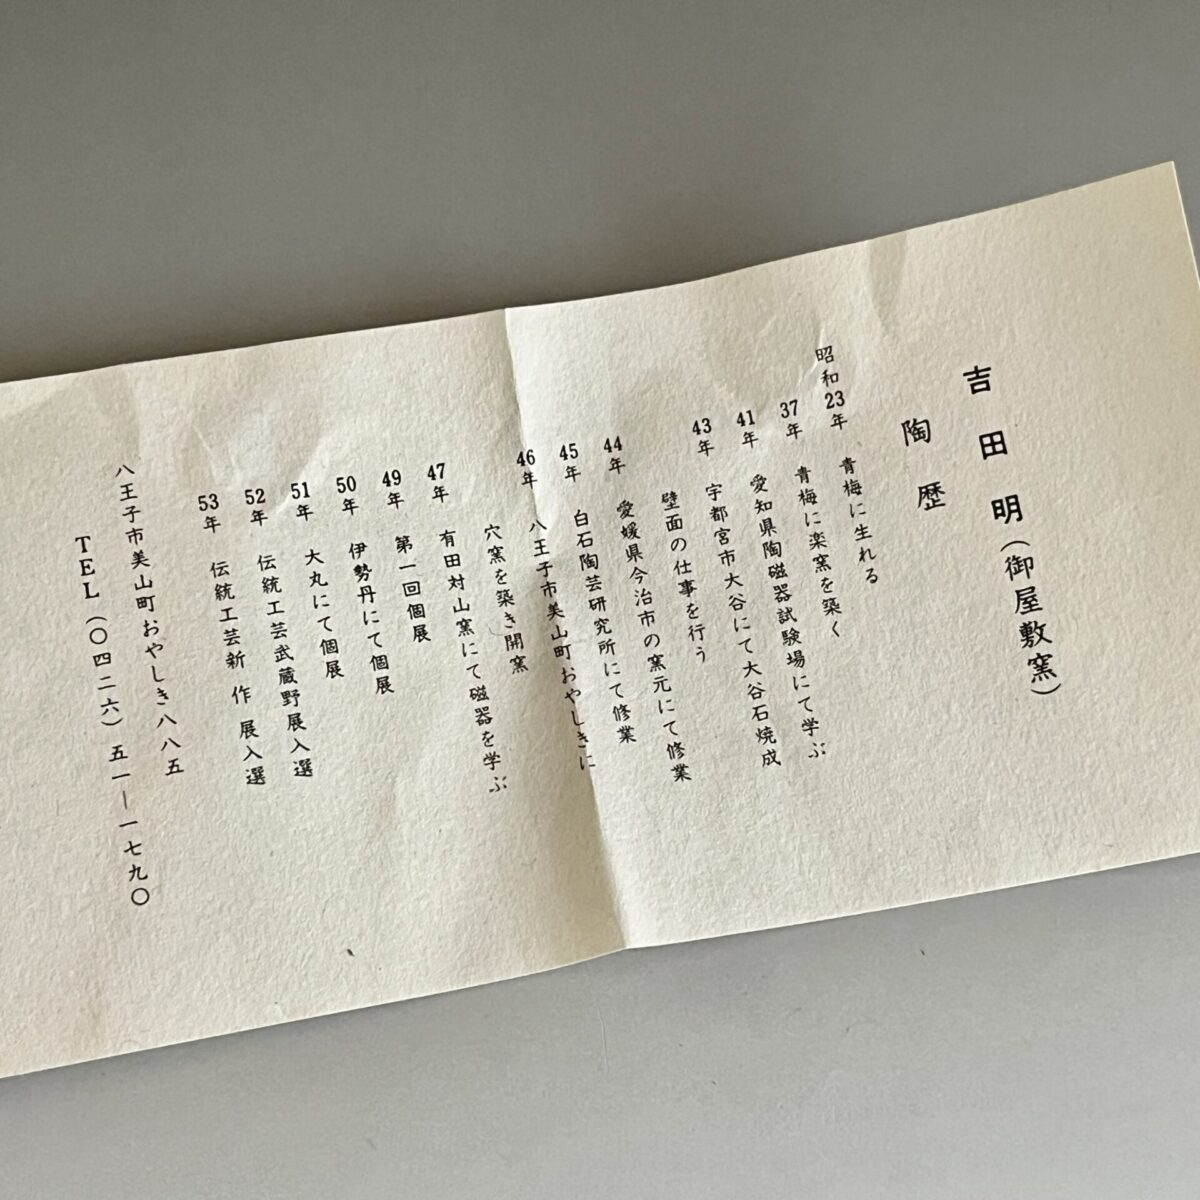 吉田明（御屋敷窯）
陶歴
昭和23年 青梅に生れる
37年 青梅に楽窯を築く
41年 愛知県陶磁器試験場にて学ぶ
43年 宇都宮市大谷にて大谷石焼成
壁面の仕事を行う
44年 愛媛県今治市の窯元にて修業
45年 白石陶芸研究所にて修業
46年 八王子市美山町おやしきに
穴窯を築き開窯
47年 有田対山窯にて磁器を学ぶ
49年 第一回個展
50年 伊勢丹にて個展
51年 大丸にて個展
52年 伝統工芸武蔵野展入選
53年 伝統工芸新作展入選
八王子市美山町おやしき八八五
TEL（〇四二六）五一―一七九〇